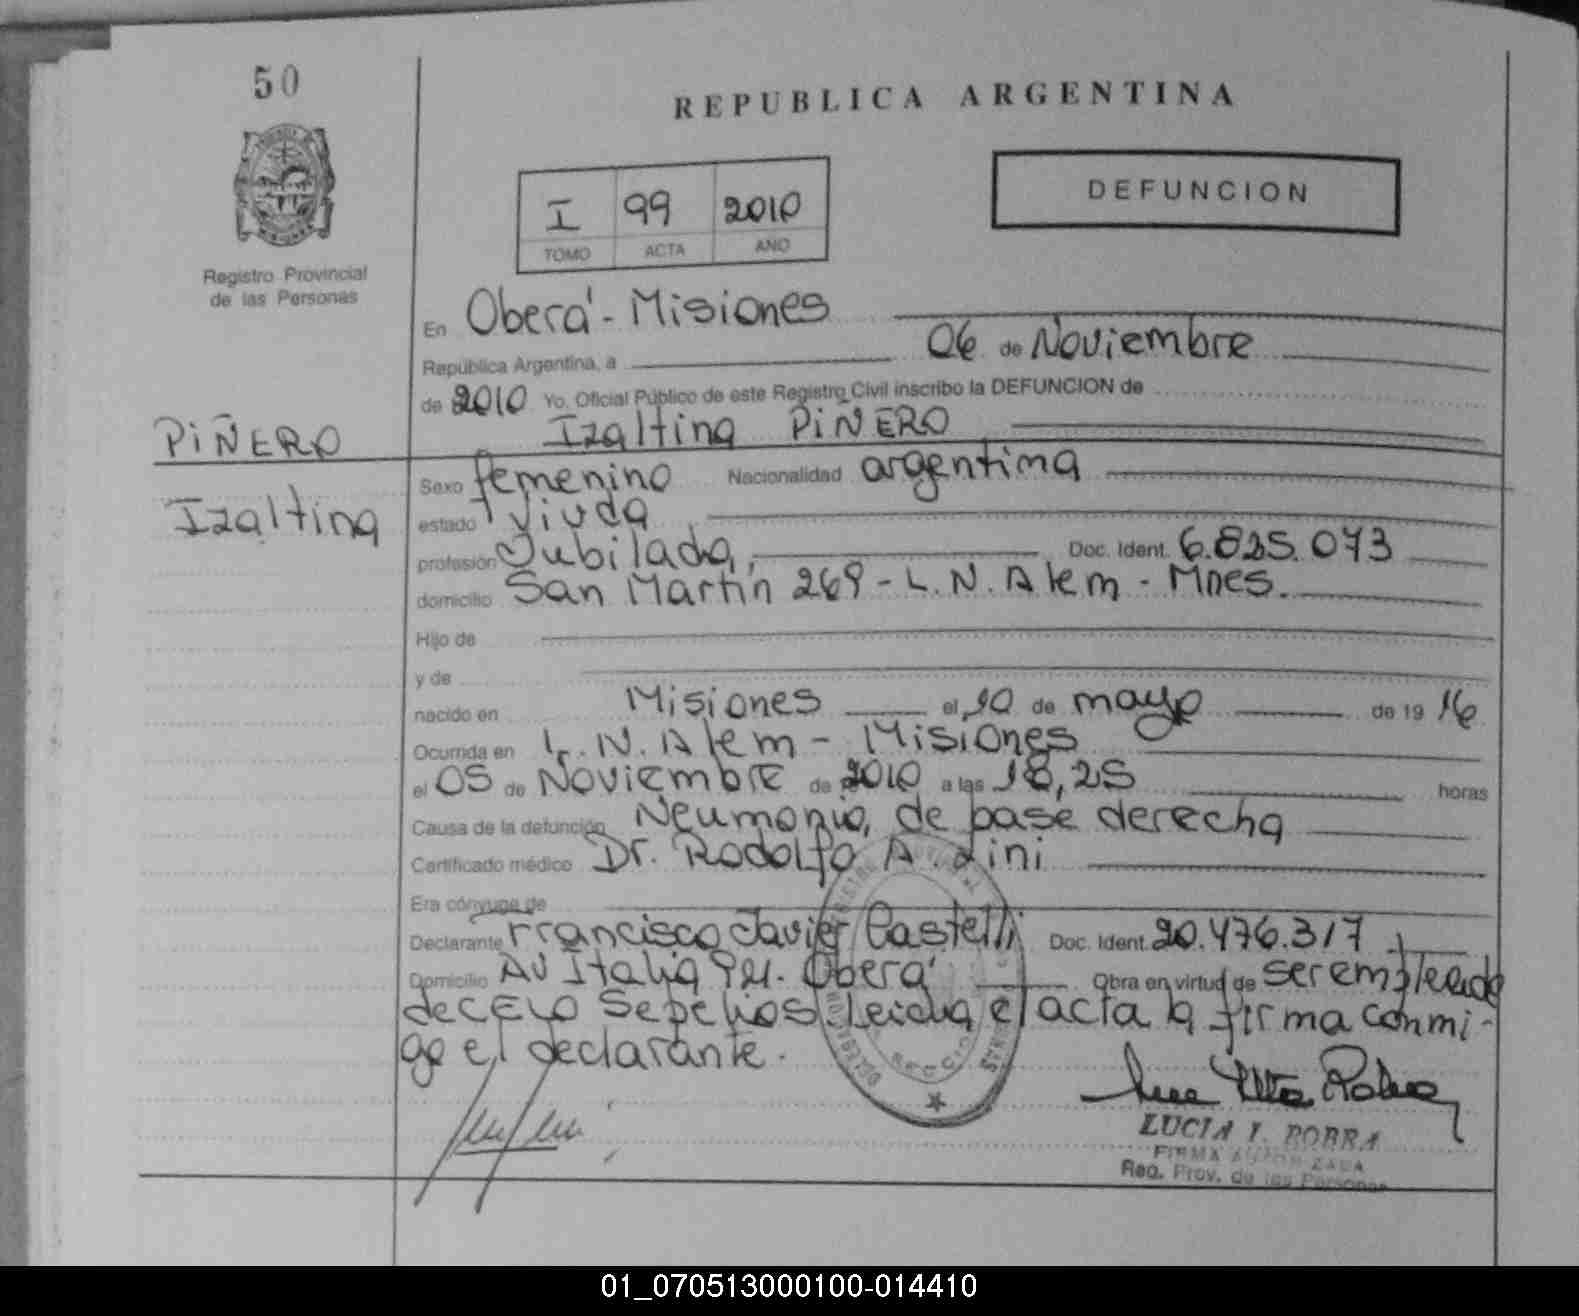 50
REPUBLICA ARGENTINA
Registro Provincial
de las Personas
I 99 2010
TOMO ACTA AÑO
DEFUNCION
En Oberá - Misiones
República Argentina, a 06 de Noviembre
de 2010 Yo, Oficial Público de este Registro Civil inscribo la DEFUNCION de
PIÑERO
Izaltina PIÑERO
Izaltina
Sexo femenino Nacionalidad argentina
estado Viuda
profesión Jubilada, Doc. Ident. 6.825.073
domicilio San Martín 269 - L.N. Alem - Mnes.
Hijo de
y de
nacido en Misiones el 10 de mayo de 19 16
Ocurrida en L.N. Alem - Misiones
el 05 de Noviembre de 2010 a las 18,25 horas
Causa de la defunción Neumonia, de base derecha
Certificado médico Dr. Rodolfo A. Lini
Era cónyuge de
Declarante Francisco Javier Castelli Doc. Ident. 20.476.317
Domicilio Av Italia Oberá Obra en virtud de ser empleado
de Sepelios. Leida el acta la firma conmi-
go el declarante.
LUCIA I. BOBRA
FIRMA AUTORIZADA
Reg. Prov. de las Personas
01_070513000100-014410